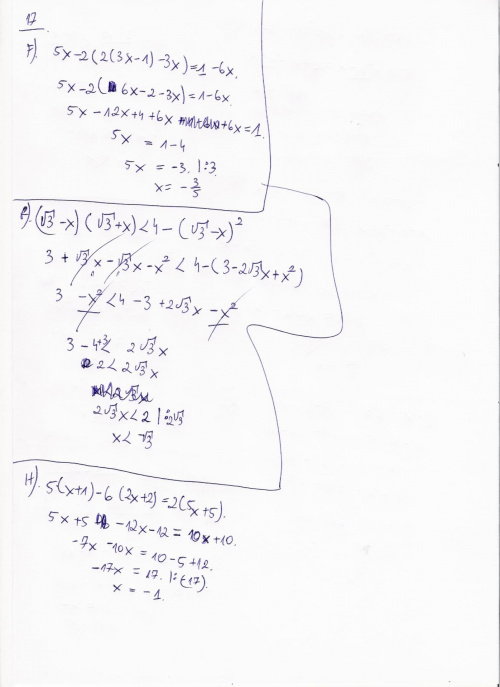 17
F). 5x-2(2(3x-1)-3x)=1-6x.
5x-2(6x-2-3x)=1-6x.
5x-12x+4+6x +6x=1.
5x = 1-4
5x = -3. |:3
x= -3/5
(√3-x)(√3+x)<4-(√3-x)²
3+√3x-√3x-x²<4-(3-2√3x+x²)
3 -x²<4-3+2√3x-x²
3-4+3< 2√3x
2<2√3x
2√3x<2 |:2√3
x< √3
H). 5(x+1)-6(2x+2)=2(5x+5).
5x+5 -12x-12=10x+10.
-7x-10x=10-5+12.
-17x=17. |:(-17).
x = -1.